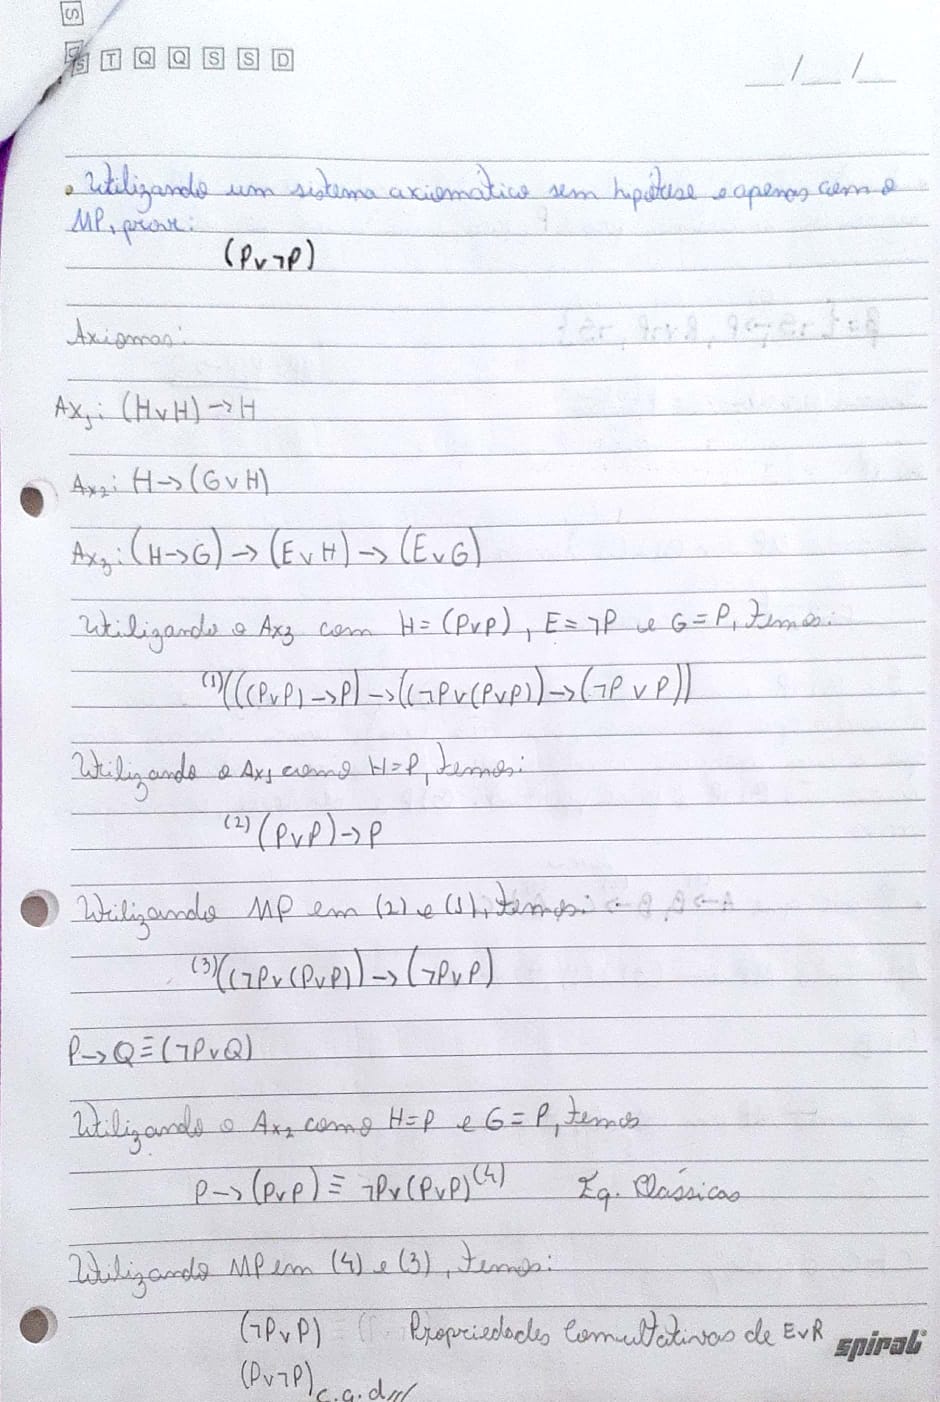 S
S T Q Q S S D
__/__/__
• Utilizando um sistema axiomático sem hipótese e apenas com o
MP, prove:
(P∨¬P)
Axiomas:
Ax₁: (H∨H)→H
Ax₂: H→(G∨H)
Ax₃: (H→G)→(E∨H)→(E∨G)
Utilizando o Ax₃ com H=(P∨P), E=¬P e G=P, temos:
(1)(((P∨P)→P)→((¬P∨(P∨P))→(¬P∨P))
Utilizando o Ax₁ como H=P, temos:
(2) (P∨P)→P
Utilizando MP em (2) e (1), temos:
(3)((¬P∨(P∨P))→(¬P∨P)
P→Q≡(¬P∨Q)
Utilizando o Ax₂ como H=P e G=P, temos
P→(P∨P)≡¬P∨(P∨P)(4) Eq. Clássicas
Utilizando MP em (4) e (3), temos:
(¬P∨P) Propriedades Comultativas de E∨R
spiral
(P∨¬P) c.q.d//